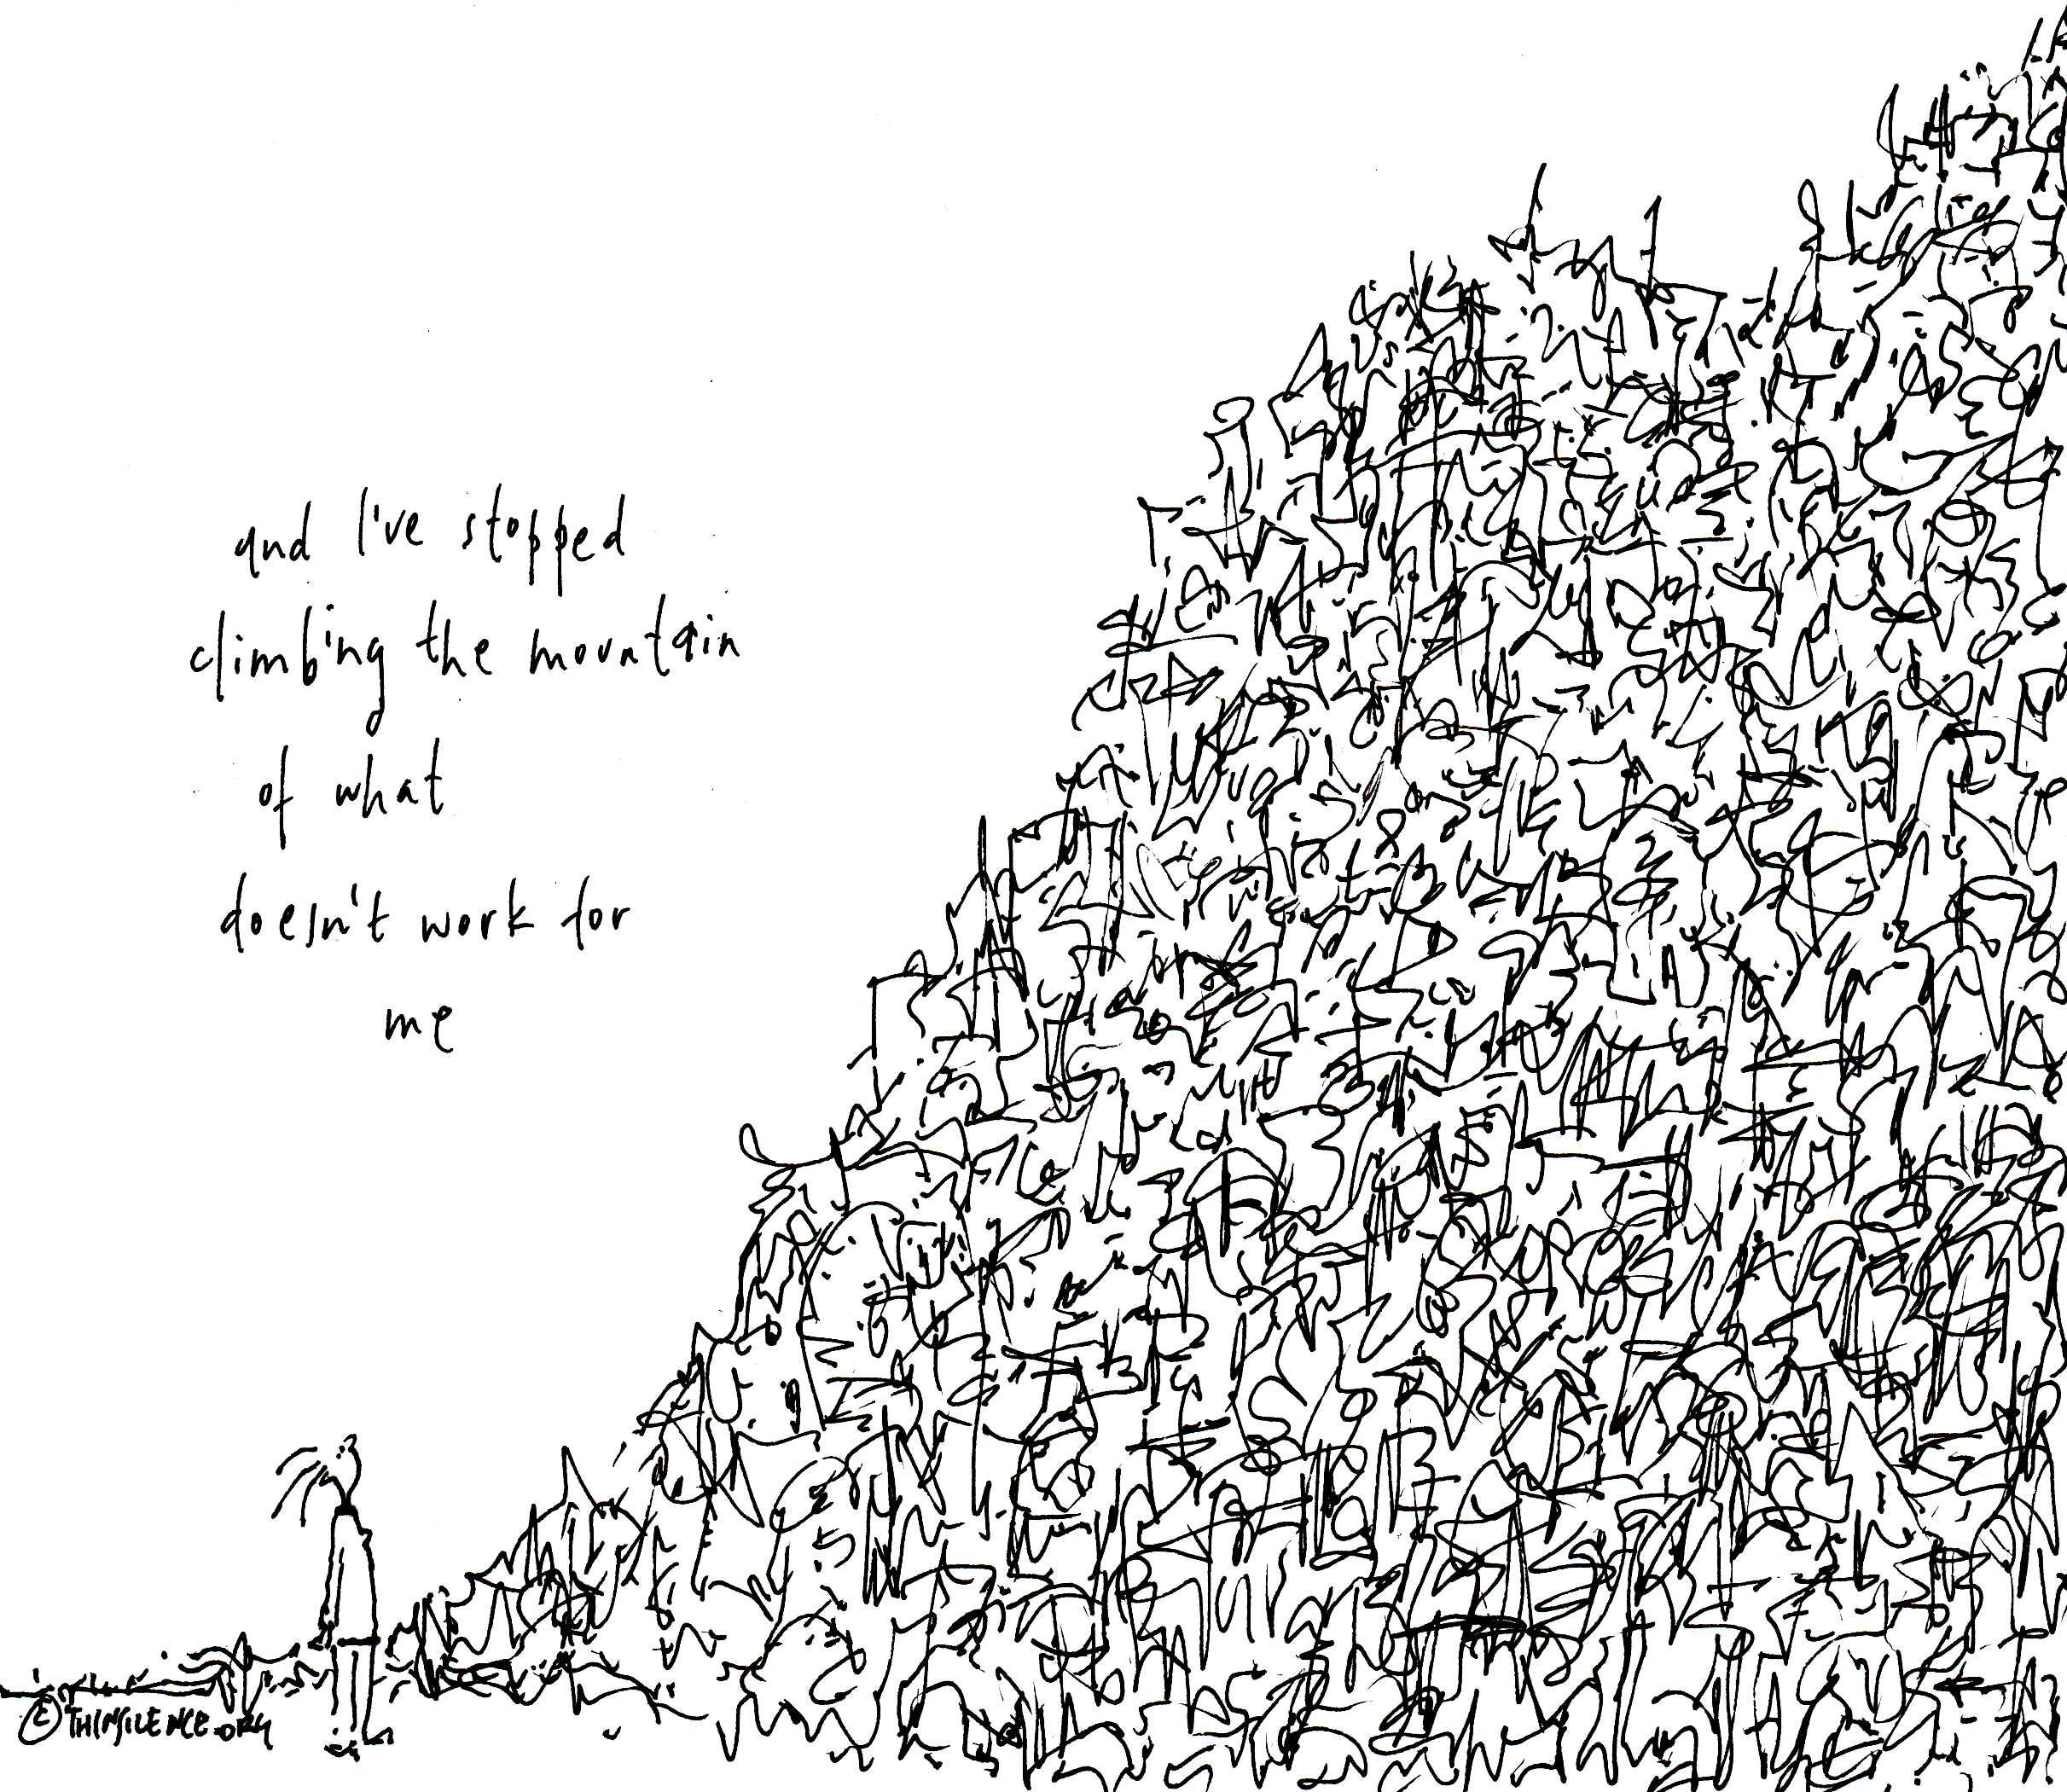 and I've stopped
climbing the mountain
of what
doesn't work for
me
© THINSILENCE.ORG